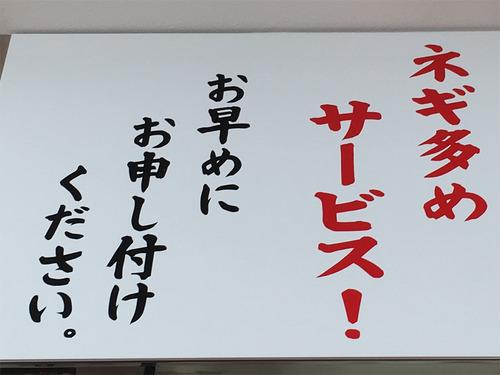 ネギ多め
サービス！
お早めに
お申し付け
ください。